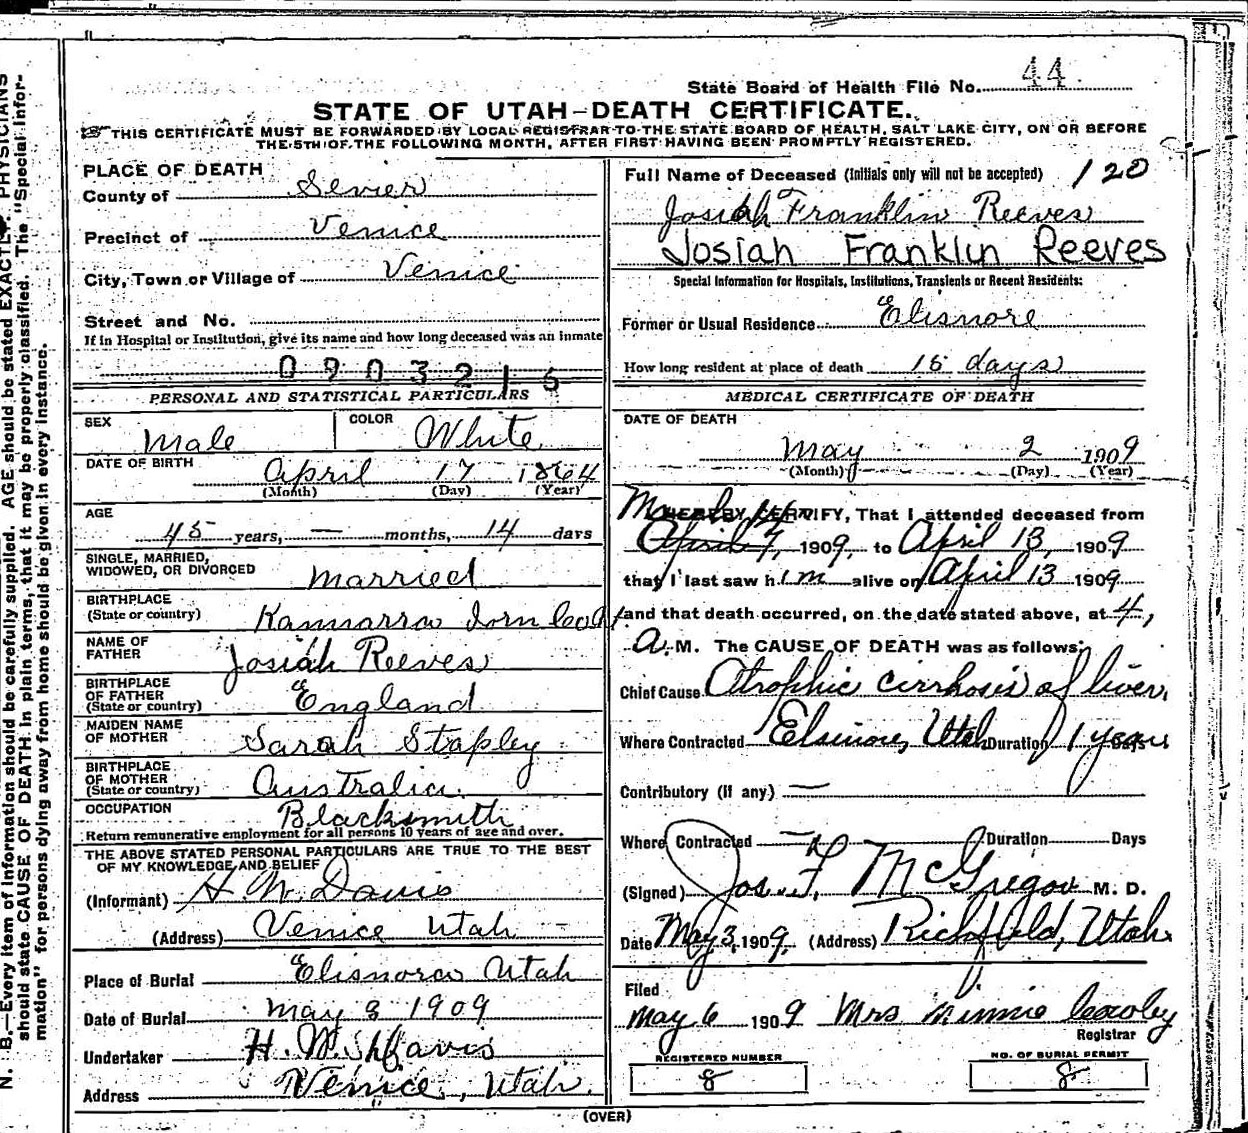 State Board of Health File No. 44
STATE OF UTAH—DEATH CERTIFICATE.
THIS CERTIFICATE MUST BE FORWARDED BY LOCAL REGISTRAR TO THE STATE BOARD OF HEALTH, SALT LAKE CITY, ON OR BEFORE
THE 5TH OF THE FOLLOWING MONTH, AFTER FIRST HAVING BEEN PROMPTLY REGISTERED.
PLACE OF DEATH
County of Sevier
Precinct of Venice
City, Town or Village of Venice
Street and No.
If in Hospital or Institution, give its name and how long deceased was an inmate
0903215
PERSONAL AND STATISTICAL PARTICULARS
SEX Male COLOR White
DATE OF BIRTH April 17 1864
(Month) (Day) (Year)
AGE
45 years, — months, 14 days
SINGLE, MARRIED,
WIDOWED, OR DIVORCED Married
BIRTHPLACE
(State or country) Kannarra Iorn
NAME OF
FATHER Josiah Reeves
BIRTHPLACE
OF FATHER
(State or country) England
MAIDEN NAME
OF MOTHER Sarah Stapley
BIRTHPLACE
OF MOTHER
(State or country) Australia
OCCUPATION Blacksmith
Return remunerative employment for all persons 10 years of age and over.
THE ABOVE STATED PERSONAL PARTICULARS ARE TRUE TO THE BEST
OF MY KNOWLEDGE AND BELIEF
(Informant) H. W. Davis
(Address) Venice Utah
Place of Burial Elisnora Utah
Date of Burial May 3 1909
Undertaker H. W.
Address Venice, Utah.
Full Name of Deceased (Initials only will not be accepted) 120
Josiah Franklin Reeves
Josiah Franklin Reeves
Special Information for Hospitals, Institutions, Transients or Recent Residents:
Former or Usual Residence Elisnore
How long resident at place of death 15 days
MEDICAL CERTIFICATE OF DEATH
DATE OF DEATH
May 2 1909
(Month) (Day) (Year)
HEREBY CERTIFY, That I attended deceased from
March
April 7, 1909, to April 13, 1909
that I last saw him alive on April 13 1909
and that death occurred, on the date stated above, at 4,
A. M. The CAUSE OF DEATH was as follows:
Chief Cause Atrophic cirrhosis of liver,
Where Contracted Elsinore, Utah Duration 1 year Days
Contributory (if any) —
Where Contracted — Duration Days
(Signed) Jos. F. McGregor M. D.
Date May 3, 1909. (Address) Richfield, Utah.
Filed
May 6 1909 Mrs Minnie Cowley
Registrar
REGISTERED NUMBER
8
NO. OF BURIAL PERMIT
8
(OVER)
N. B.—Every item of information should be carefully supplied. AGE should be stated EXACTLY. PHYSICIANS
should state CAUSE OF DEATH in plain terms, that it may be properly classified. The "Special Infor-
mation" for persons dying away from home should be given in every instance.